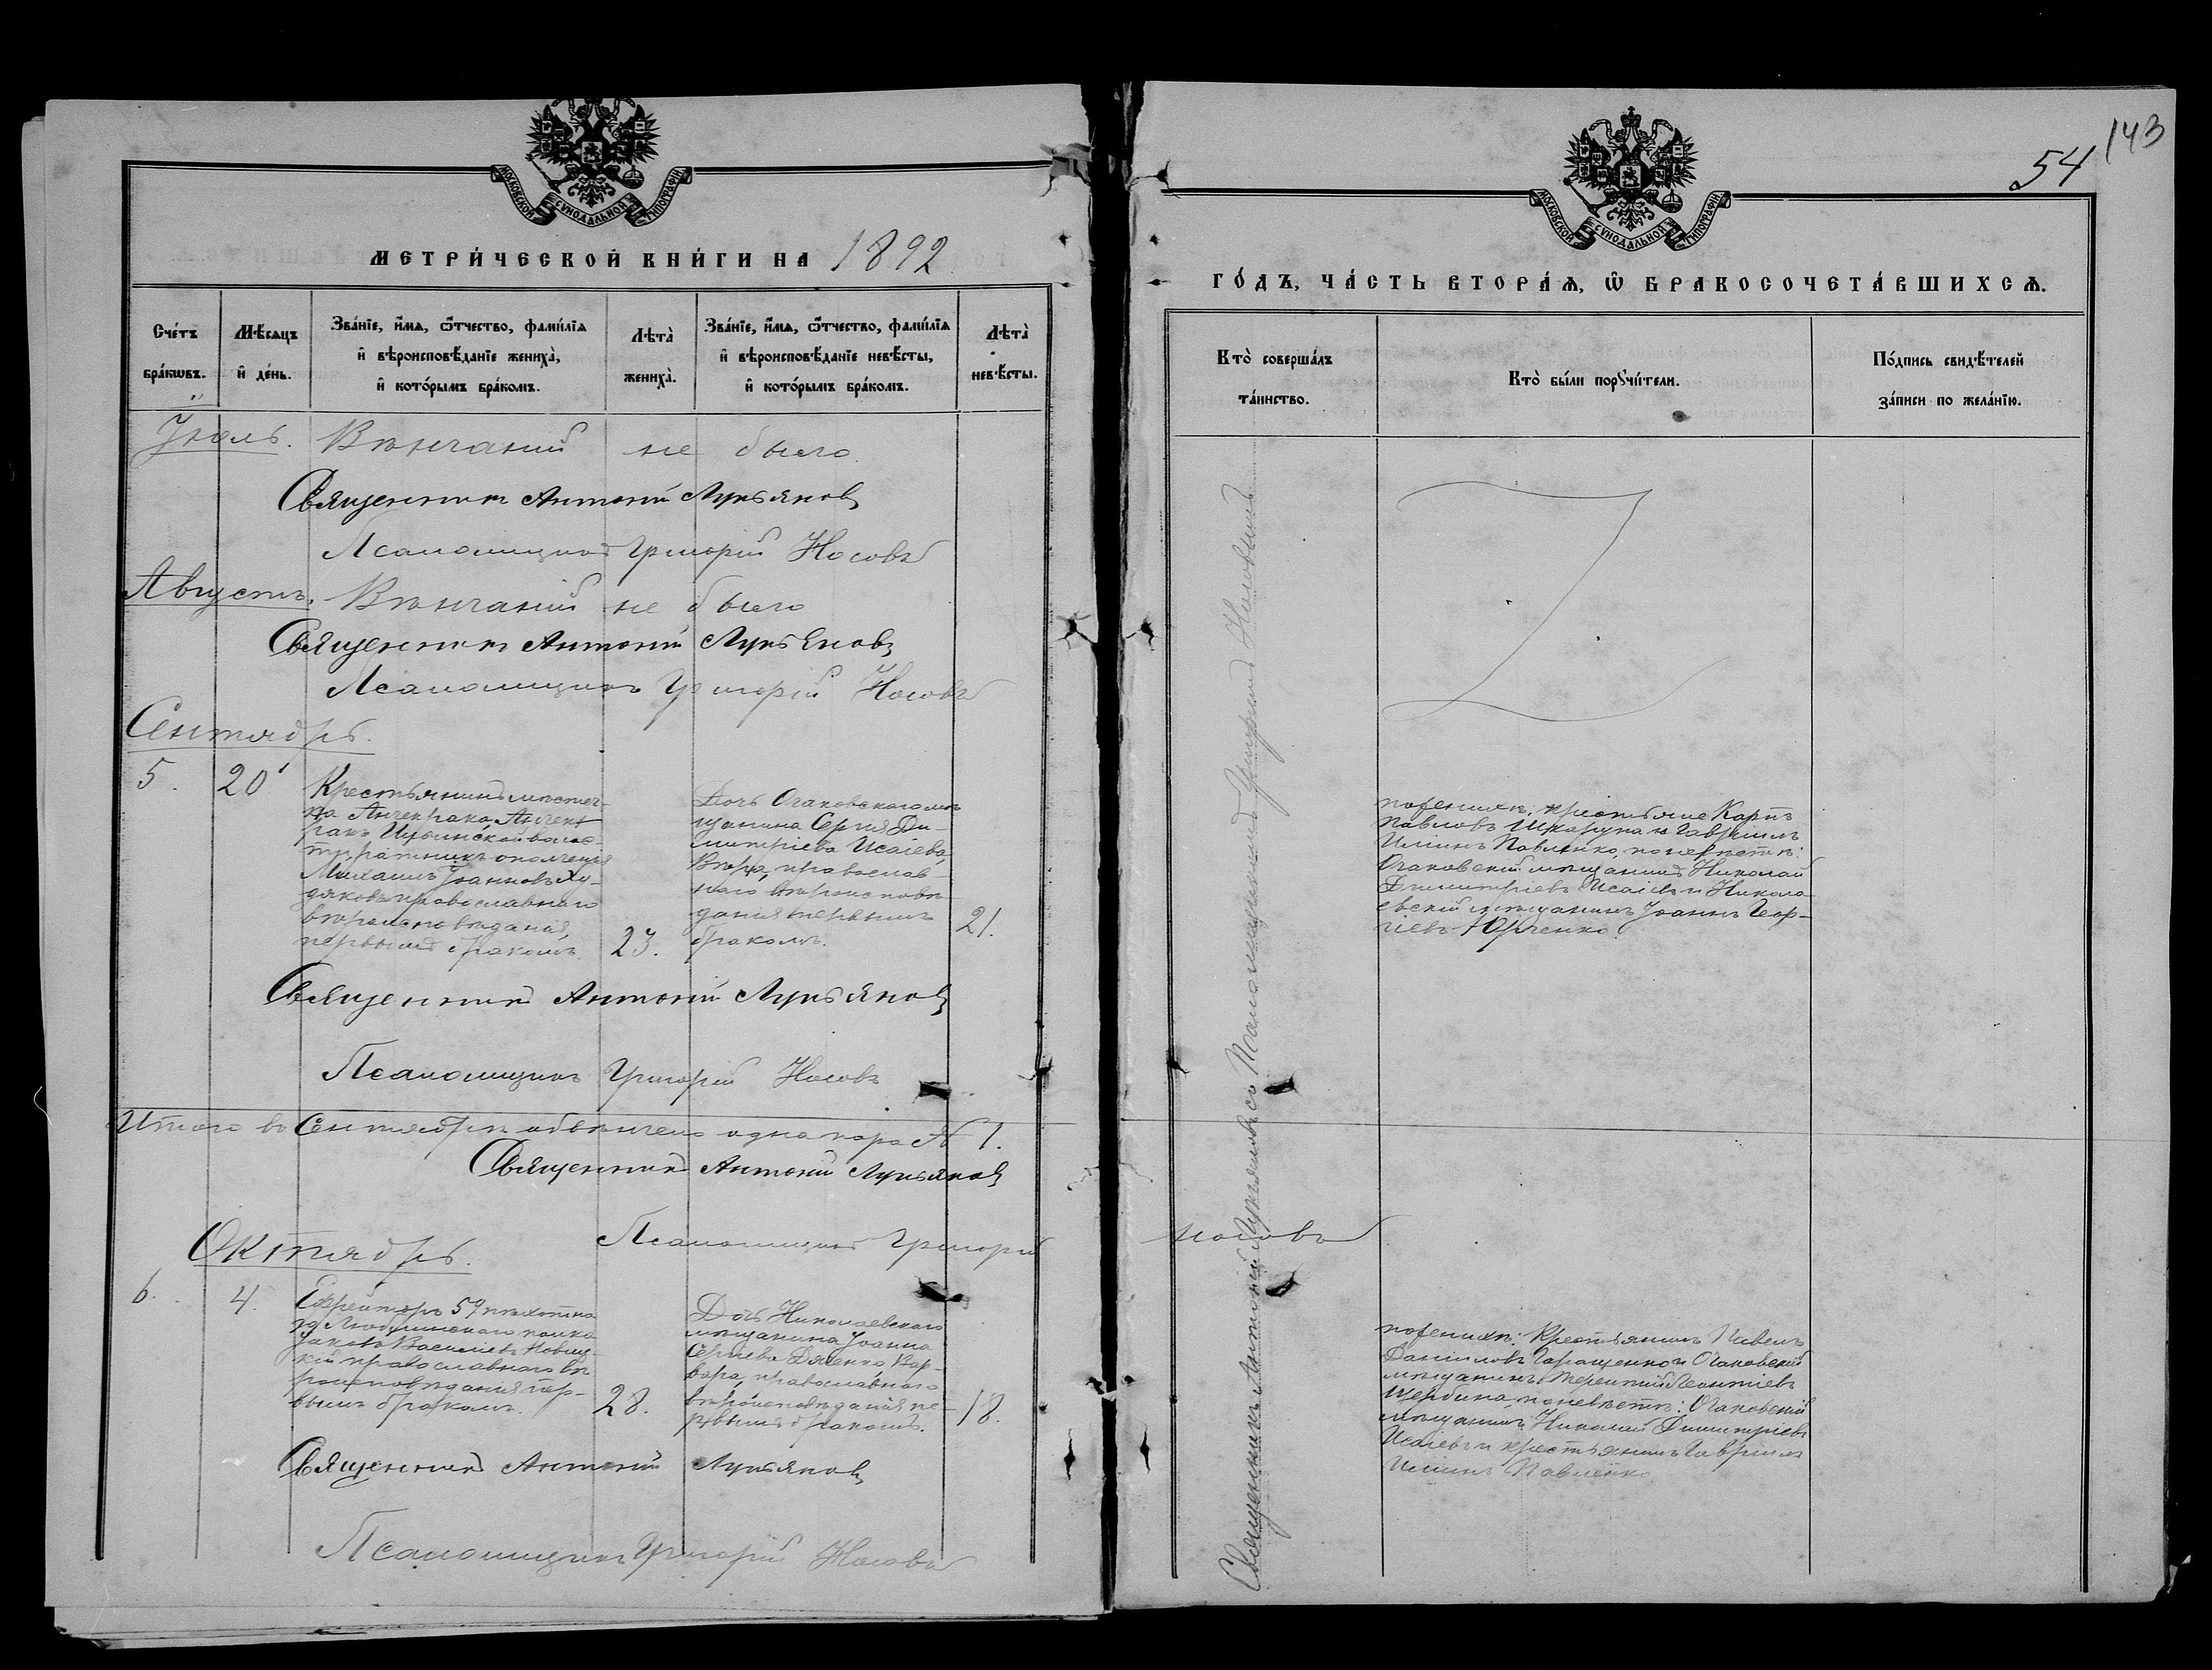 МОСКОВСКОЙ СѴНОДАЛЬНОЙ ТИПОГРАФІИ
МЕТРИ́ЧЕСКОЙ КНИ́ГИ НА 1892
Сче́тъ бра́кѡвъ.
Мѣ́сѧцъ и҆ де́нь.
Зва́нїе, и҆́мѧ, ѻ҆́тчество, фамѝлїѧ
и҆ вѣроисповѣ́данїе жениха̀,
и҆ кото́рымъ бра́комъ.
Лѣта̀ жениха̀.
Зва́нїе, и҆́мѧ, ѻ҆́тчество, фамѝлїѧ
и҆ вѣроисповѣ́данїе невѣ́сты,
и҆ кото́рымъ бра́комъ.
Лѣта̀ невѣ́сты.
Іюль. Вѣнчаній не было.
Священникъ Антоній Лукьяновъ
Псаломщикъ Григорій Носовъ
Августъ. Вѣнчаній не было
Священникъ Антоній Лукьяновъ
Псаломщикъ Григорій Носовъ
Сентябрь.
5. 20
Крестьянинъ мѣстеч-
ка Анчекрака Анчек
ракъ Ильинской волос-
ти ратникъ ополченія
Михаилъ Іоанновъ Ху-
дяковъ православнаго
вѣроисповѣданія,
первымъ бракомъ.
23.
Дочь Очаковскаго мѣ
щанина Сергія Ди-
митріева Исаіева,
Вѣра, православ-
наго вѣроисповѣ
данія первымъ
бракомъ.
21.
Священникъ Антоній Лукьяновъ
Псаломщикъ Григорій Носовъ
Итого въ Сентябрѣ обвѣнчено одна пара № 1.
Священникъ Антоній Лукьяновъ
Псаломщикъ Григорій
Октябрь.
6. 4.
Ефрейторъ 59 пѣхотна
го Люблинскаго полка
Іаковъ Васильевъ Новиц-
кій православнаго вѣ
роисповѣданія пер-
вымъ бракомъ.
28.
Дочь Николаевскаго
мѣщанина Іоанна
Сергіева Дяченко Вар-
вара, православнаго
вѣроисповѣданія пе-
рвымъ бракомъ.
18.
Священникъ Антоній Лукьяновъ
Псаломщикъ Григорій Носовъ
143
54
МОСКОВСКОЙ СѴНОДАЛЬНОЙ ТИПОГРАФІИ
ГО́ДЪ, ЧА́СТЬ ВТОРА́Ѧ, Ѽ БРАКОСОЧЕТА́ВШИХСѦ.
Кто̀ соверша́лъ
та́инство.
Кто̀ бы́ли порꙋчи́тели.
По́дпись свидѣ́телей
за́писи по жела́нїю.
Священникъ Антоній Лукьяновъ со Псаломщикомъ Григоріемъ Носовымъ
по женихѣ: крестьяне Карпъ
Павловъ Шкарупа и Гавріилъ
Иліинъ Павленко, по невѣстѣ:
Очаковскій мѣщанинъ Николай
Димитріевъ Исаіевъ и Никола-
евскій мѣщанинъ Іоаннъ Геор-
гіевъ Юрченко.
Носовъ
по женихѣ: Крестьянинъ Павелъ
Даніиловъ Геращенко и Очаковскій
мѣщанинъ Терентій Леонтіевъ
Щербина, по невѣстѣ: Очаковскій
мѣщанинъ Николай Димитріевъ
Исаіевъ и крестьянинъ Гавріилъ
Иліинъ Павленко.